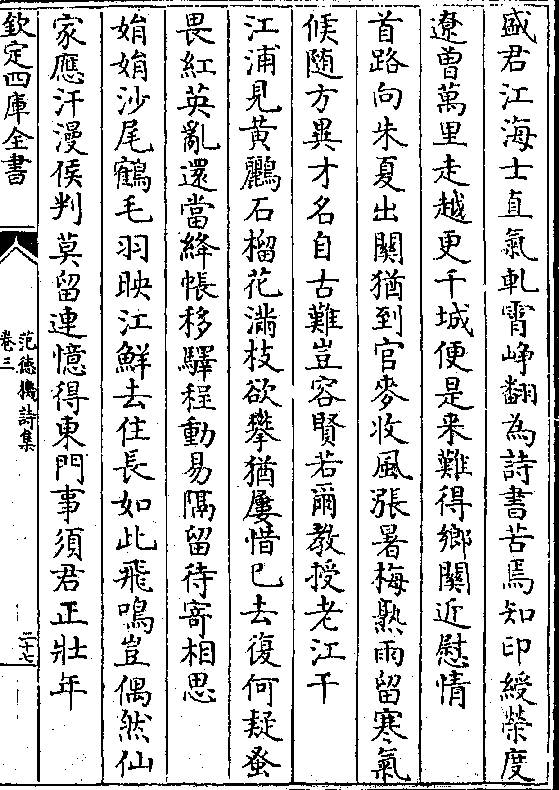 盛君江海士直氣軋霄崢翻為詩書苦焉知印綬榮度
遼曽萬里走越更千城便是来難得鄉關近慰情
首路向朱夏出關猶到官麥收風漲暑梅熟雨留寒氣
候随方異才名自古難豈容賢若爾教授老江干
江浦見黄鸝石榴花滿枝欲攀猶屢惜已去復何疑蚤
畏紅英亂還當絳帳移驛程動易隔留待寄相思
娟娟沙尾鶴毛羽映江鮮去住長如此飛鳴豈偶然仙
家應汗漫侯判莫留連憶得東門事須君正壯年
欽定四庫全書
范徳機詩集
卷三
二十七